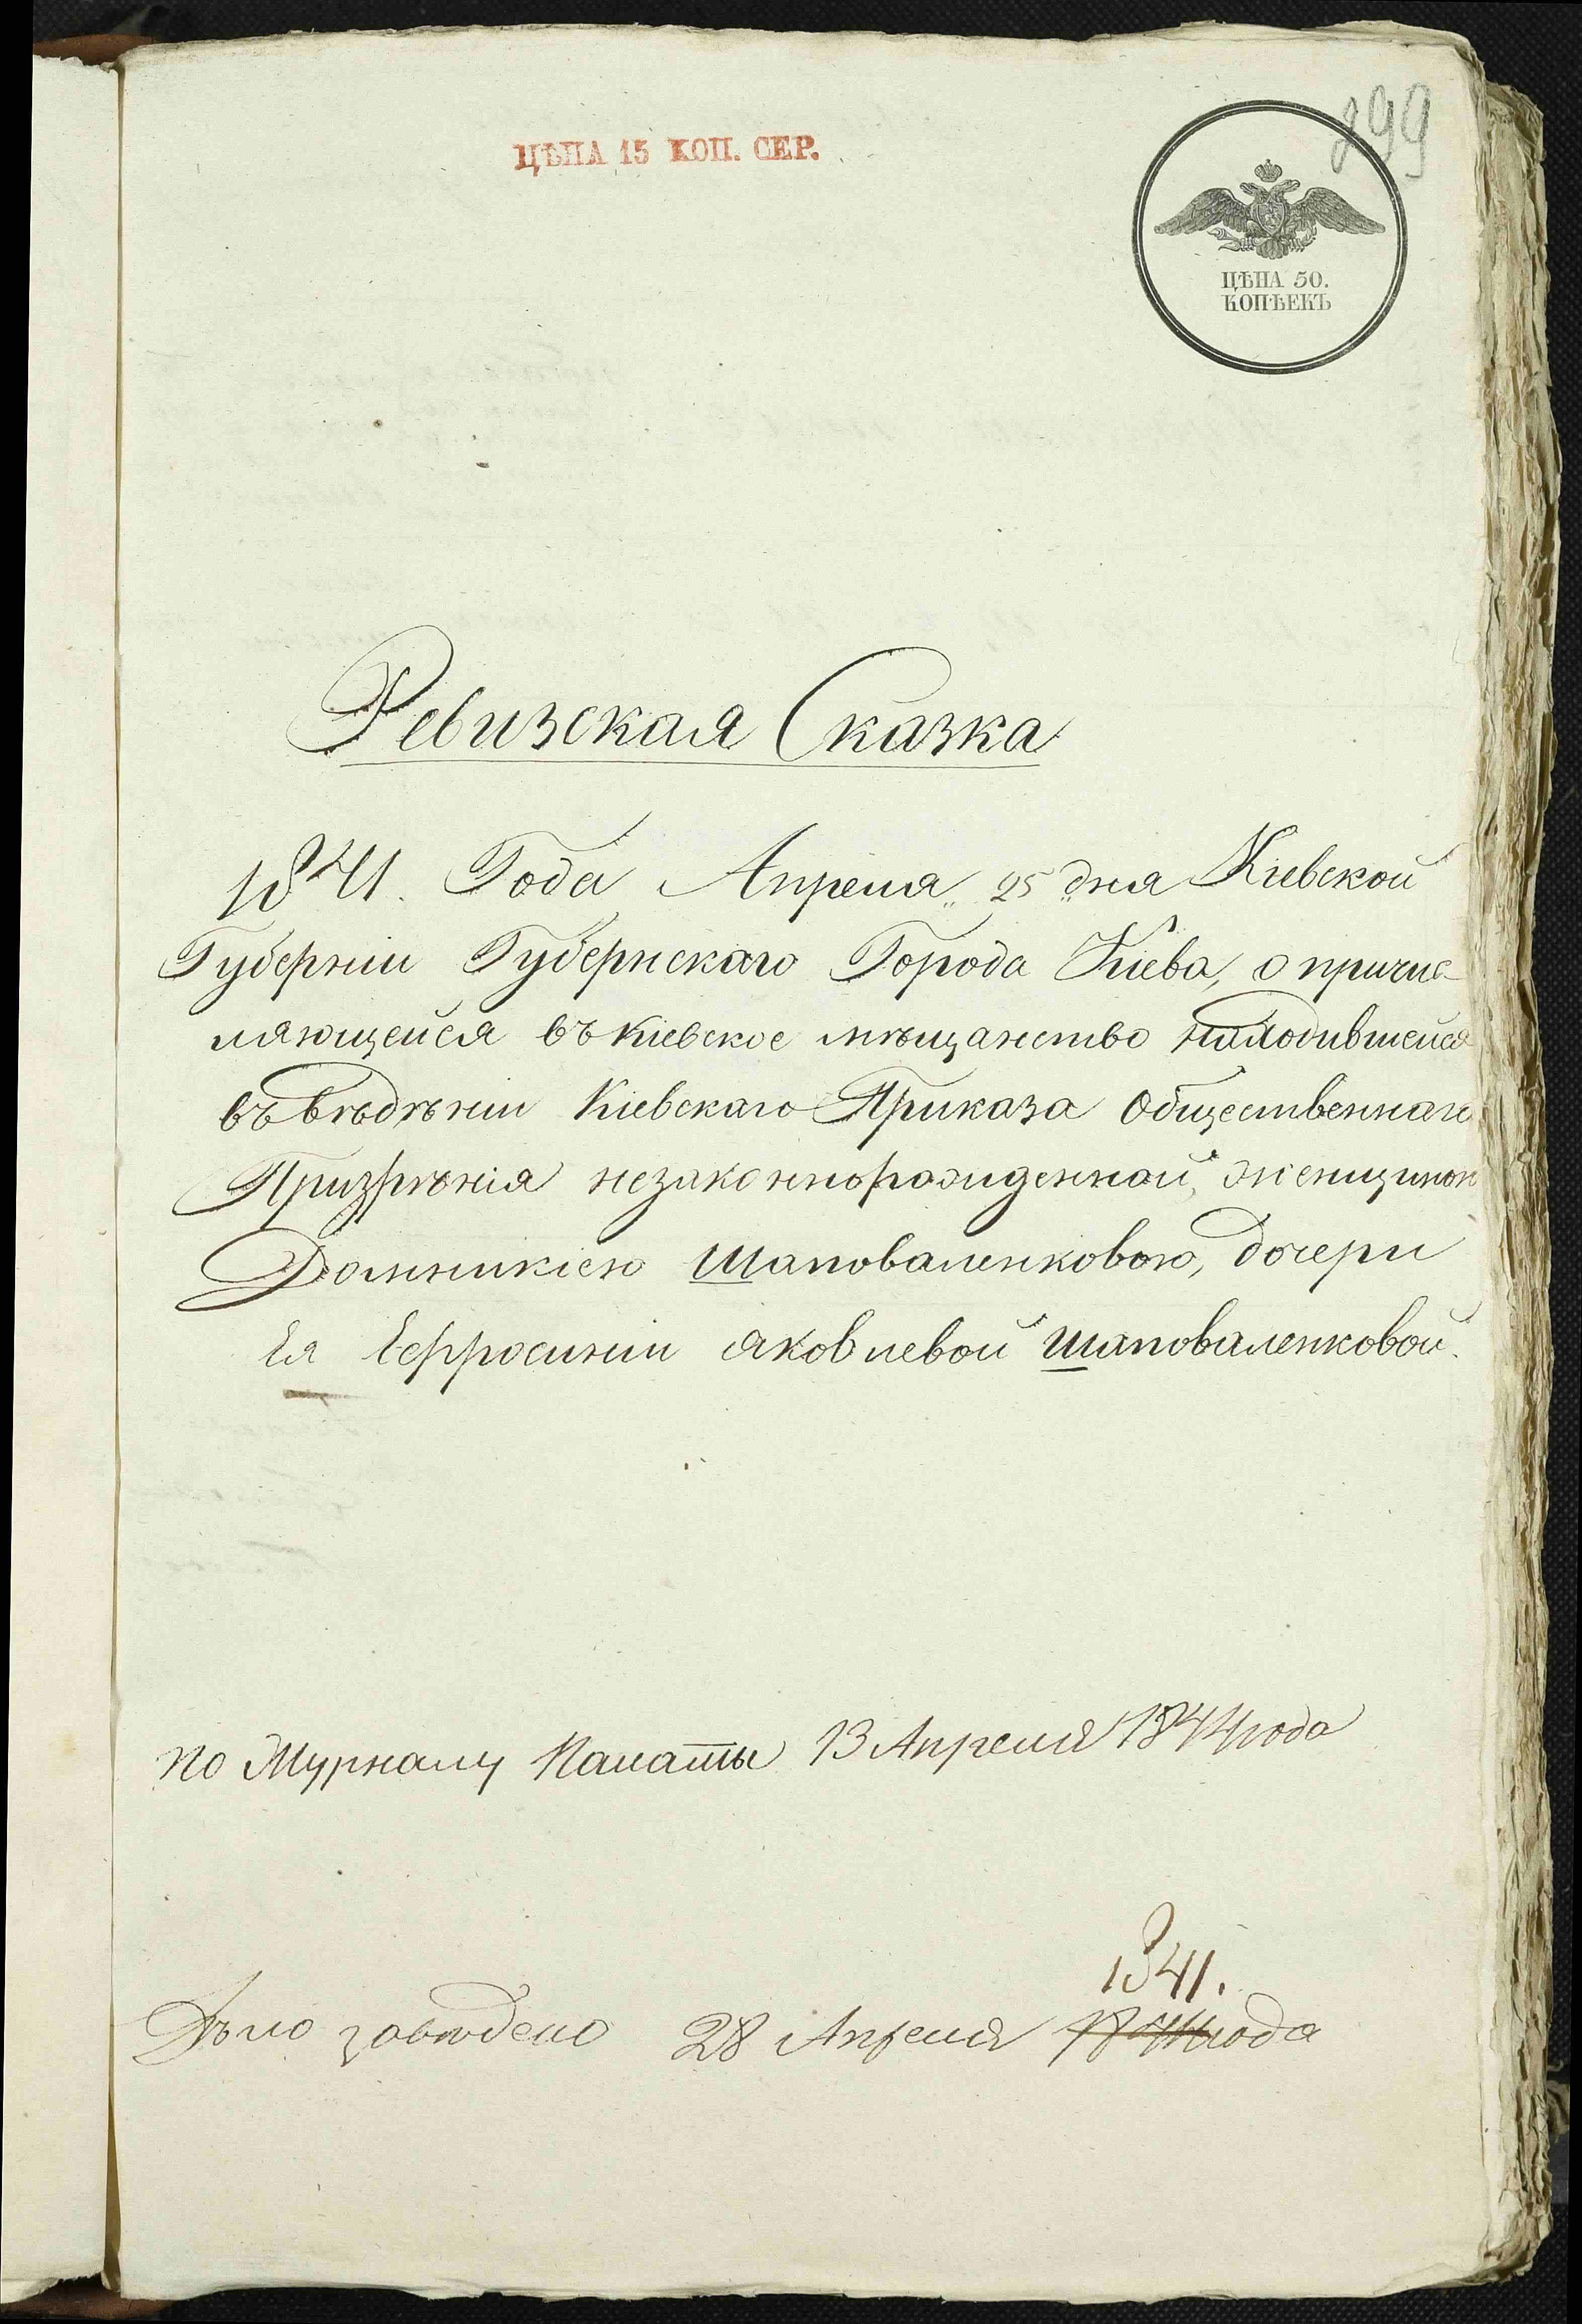 299
ЦѢНА 15 КОП. СЕР.
ЦѢНА 50.
КОПѢЕКЪ
Ревизская Сказка
1841. Года Апреля „25„ дня Кіевской
Губерніи Губернскаго Города Кіева, о причис-
ляющейся въ Кіевское мѣщанство находившейся
въ вѣдѣніи Кіевскаго Приказа Общественнаго
Призрѣнія незаконнорожденной, женщиною
Домникіею Шаповаленковою, дочери
Ея Ефросиніи Яковлевой Шаповаленковой.
по Журналу Палаты 13 Апреля 1841 года
1841.
Дѣло заведено 28 Апреля года